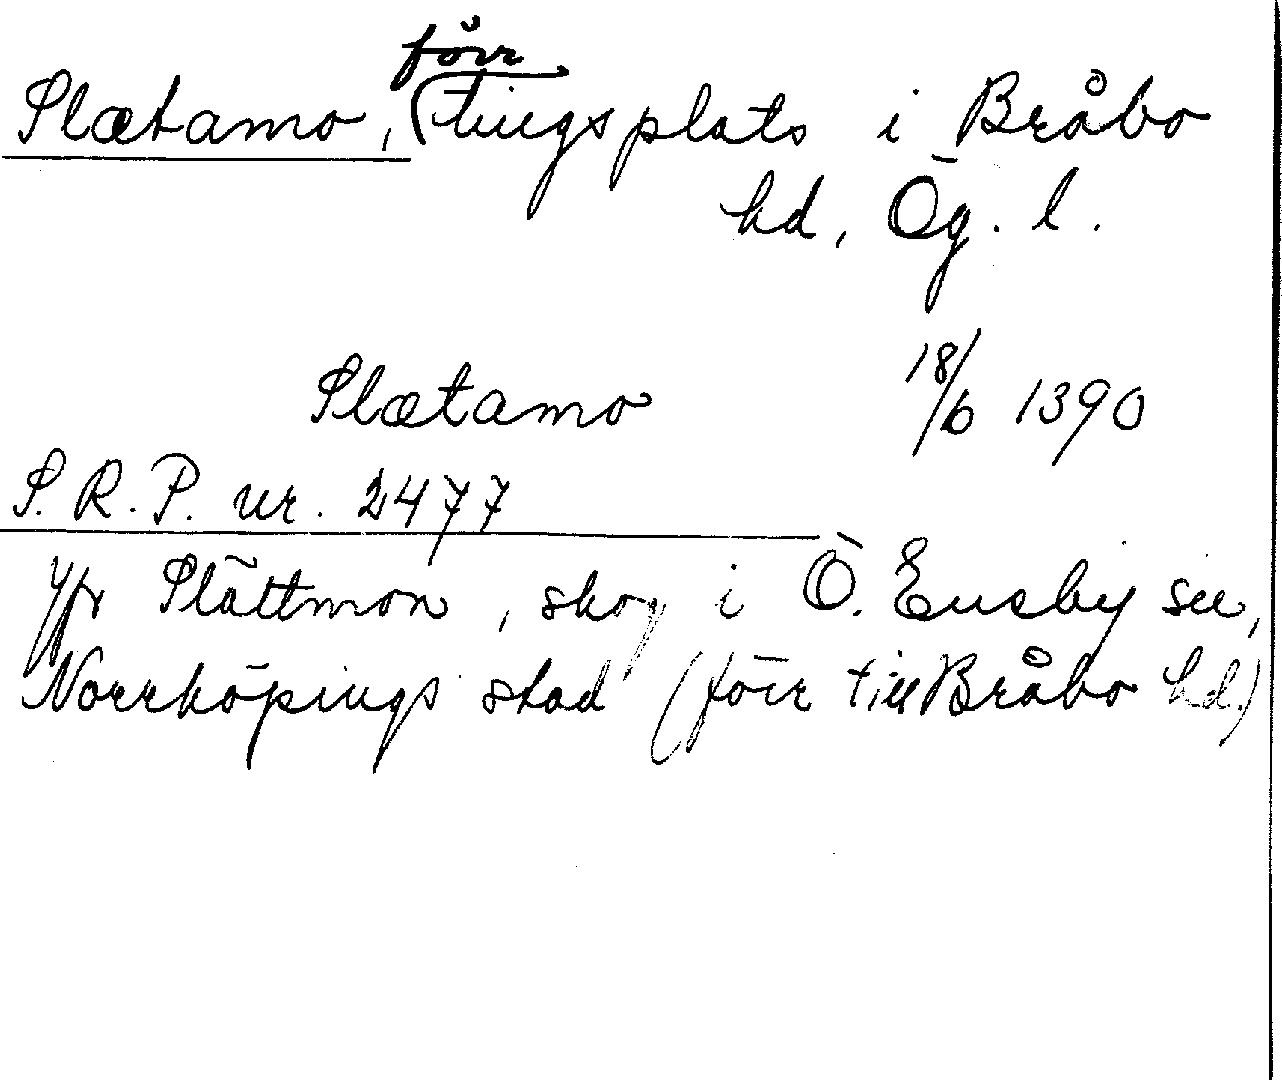 Slætamo, förr tingsplats i Bråbo
hd, Ög. l.
Slætamo 18/6 1390
S.R.P. nr. 2477
Jfr Slättmon, skog i Ö. Eneby sn,
Norrköpings stad (förr till Bråbo hd.)